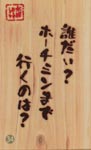 誰だい?
ホーチミンまで
行くのは?